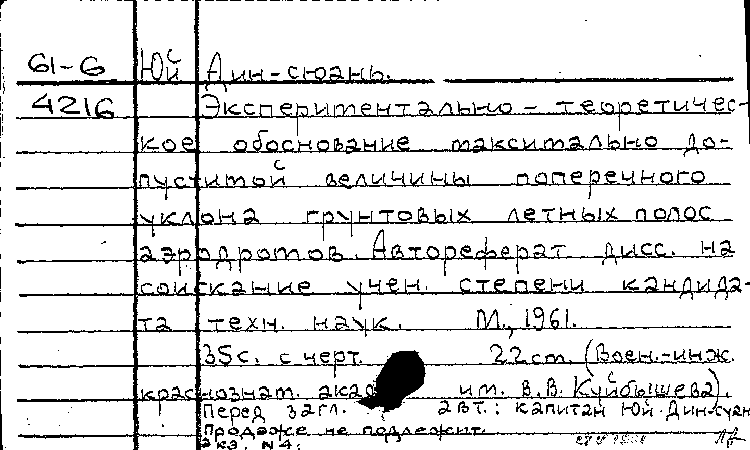 61-6 Юй Дин-сюань.
4216 Экспериментально-теоретичес-
кое обоснование максимально до-
пустимой величины поперечного
уклона грунтовых летных полос
аэродромов. Автореферат дисс. на
соискание учен. степени кандида-
та техн. наук. М., 1961.
35с. с черт. 22cm. (Воен.-инж.
краснознам. акад им. В.В. Куйбышева).
Перед загл. авт.: капитан Юй Дин-сюан
Продаже не подлежит.
Экз. N4: